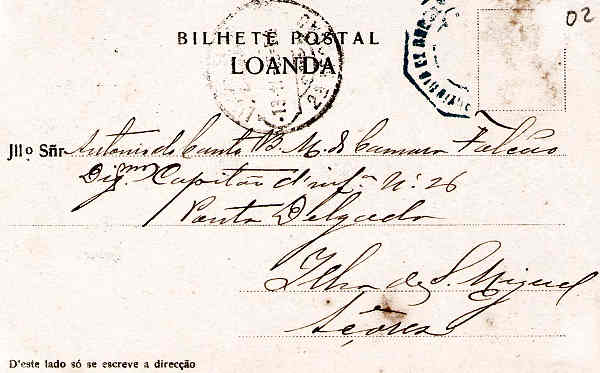 02
BILHETE POSTAL
LOANDA
Jllº Sñr Antonio do Canto B. M. da Camara Falcão
Dig.mo Capitão d'inf.ª Nº 26
Ponta Delgada
Ilha de S. Miguel
Açores
D'este lado só se escreve a direcção